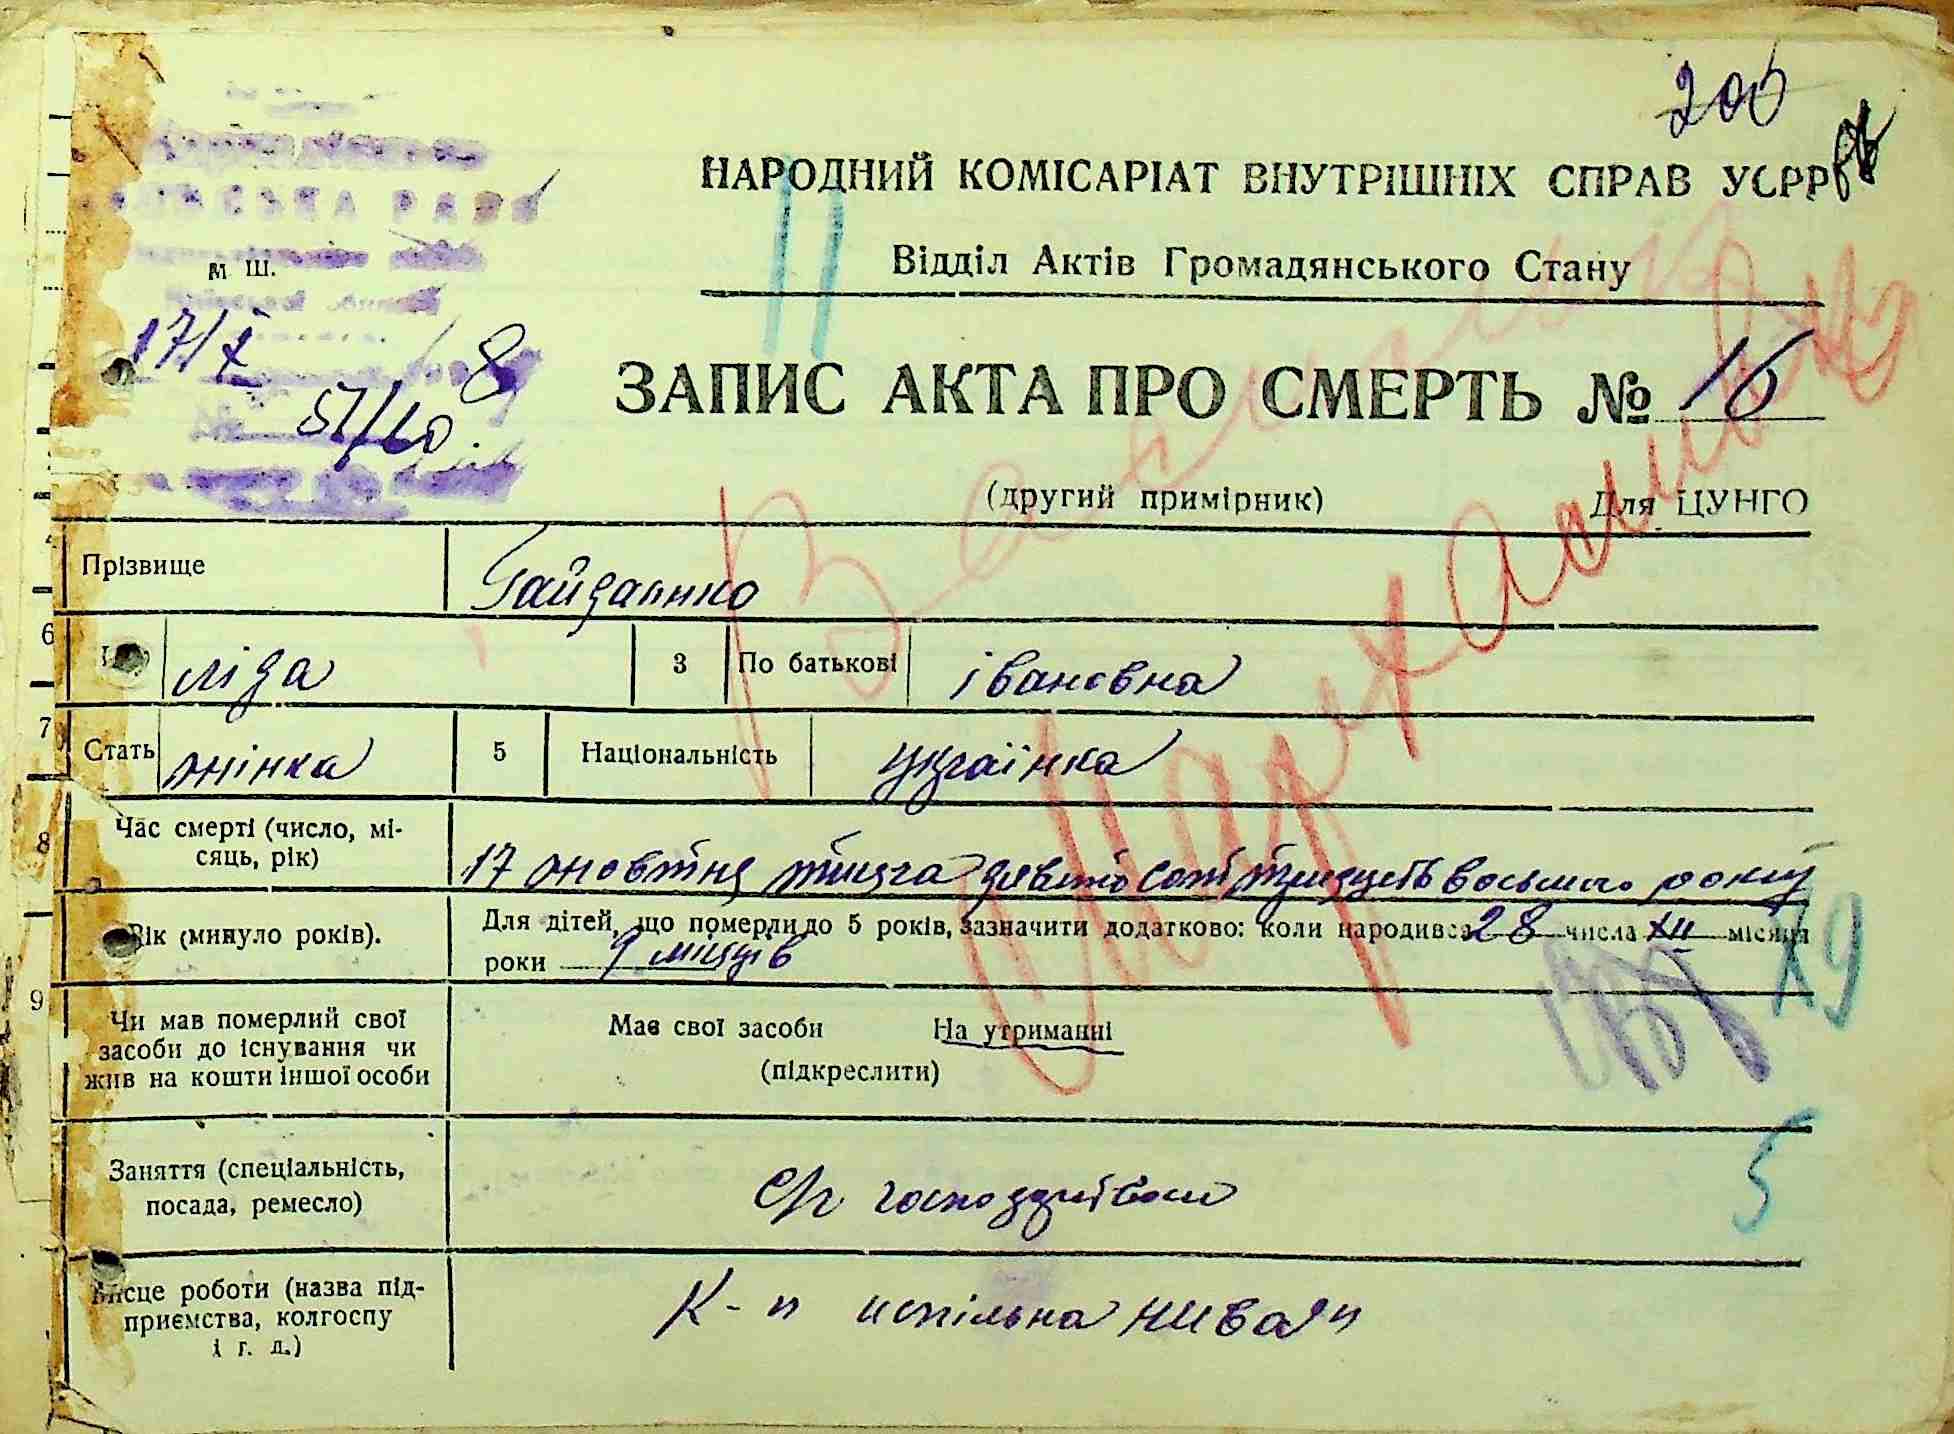 200
НАРОДНИЙ КОМІСАРІАТ ВНУТРІШНІХ СПРАВ УСРР
Відділ Актів Громадянського Стану
м Ш.
17/X 8
ЗАПИС АКТА ПРО СМЕРТЬ № 16
(другий примірник) Для ЦУНГО
Прізвище Гайдаенко
6 ліда 3 По батькові івановна
7 Стать жінка 5 Національність українка
8 Час смерті (число, місяць, рік) 17 жовтня тисяча девятсот тридцять восьмого року
Вік (минуло років). Для дітей, що померли до 5 років, зазначити додатково: коли народився 28 числа XII місяця
роки 9 місяців
19
9 Чи мав померлий свої засоби до існування чи жив на кошти іншої особи Має свої засоби На утриманні
(підкреслити)
5
Заняття (спеціальність, посада, ремесло) с/г господарство
Місце роботи (назва підприємства, колгоспу і т. д.) К-п "спільна нива"